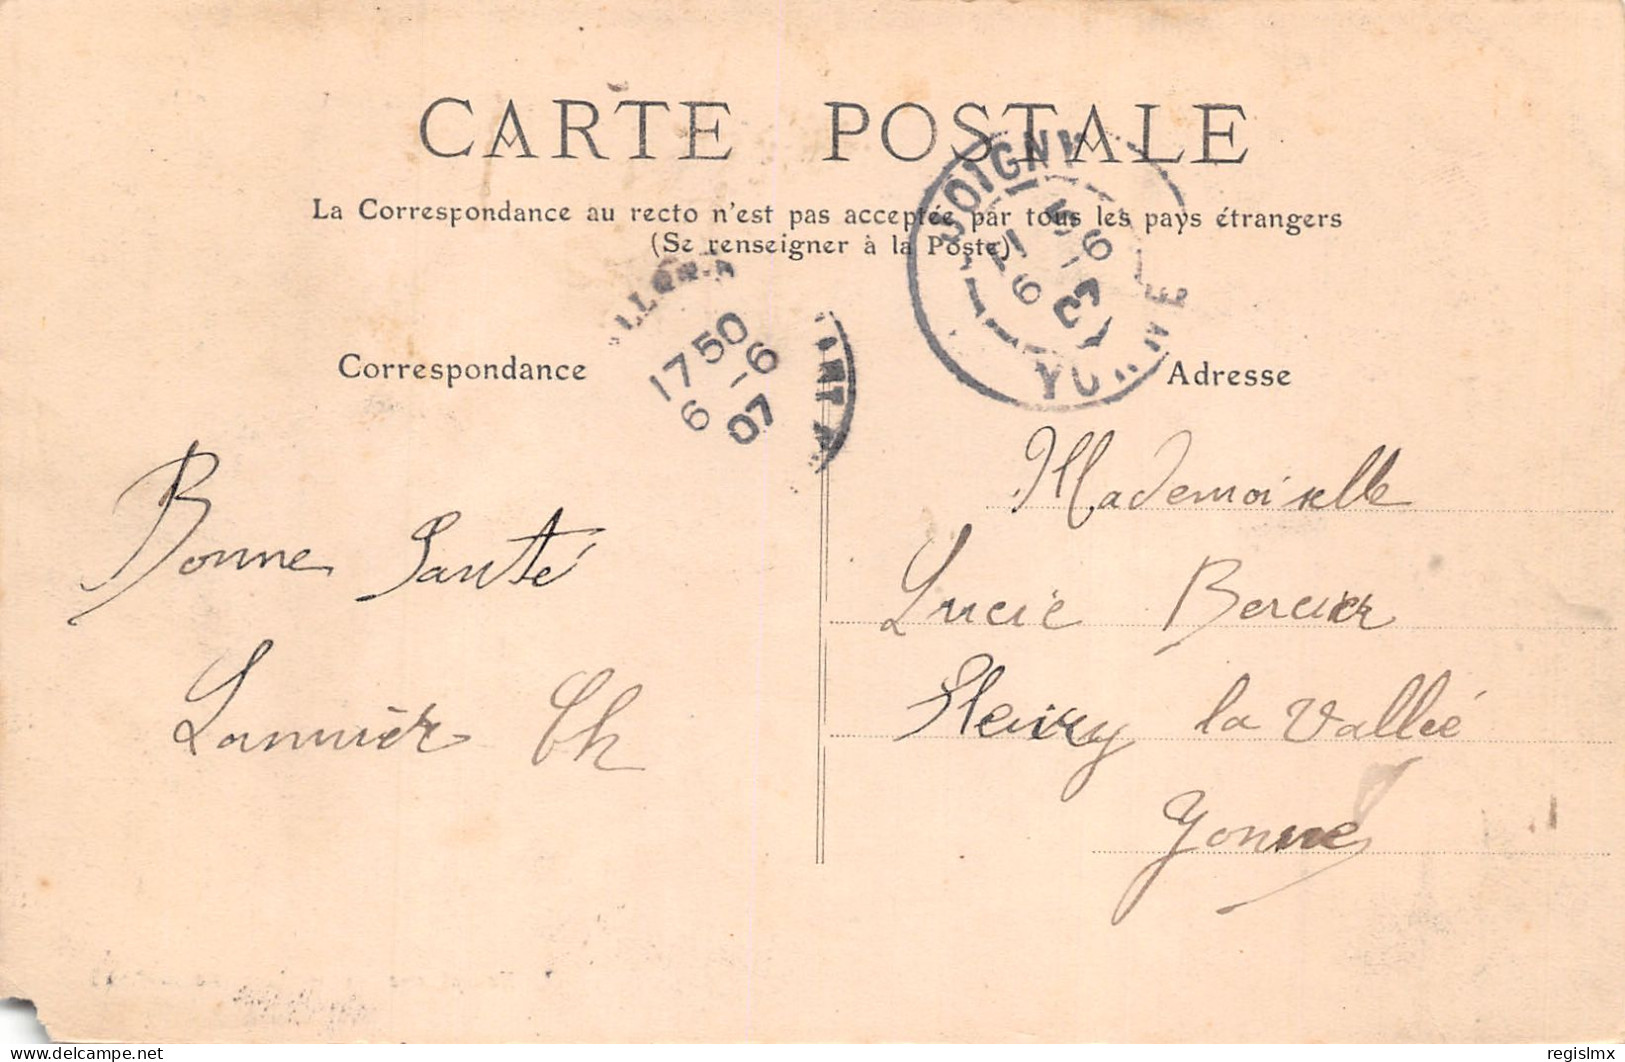 CARTE POSTALE
La Correspondance au recto n'est pas acceptée par tous les pays étrangers
(Se renseigner à la Poste)
JOIGNY
6 - 6
07
YONNE
1750
6 - 6
07
Correspondance
Adresse
Bonne Santé
Lannier Ch
Mademoiselle
Lucie Bercier
Fleury la Vallée
Yonne
delcampe.net
regislmx